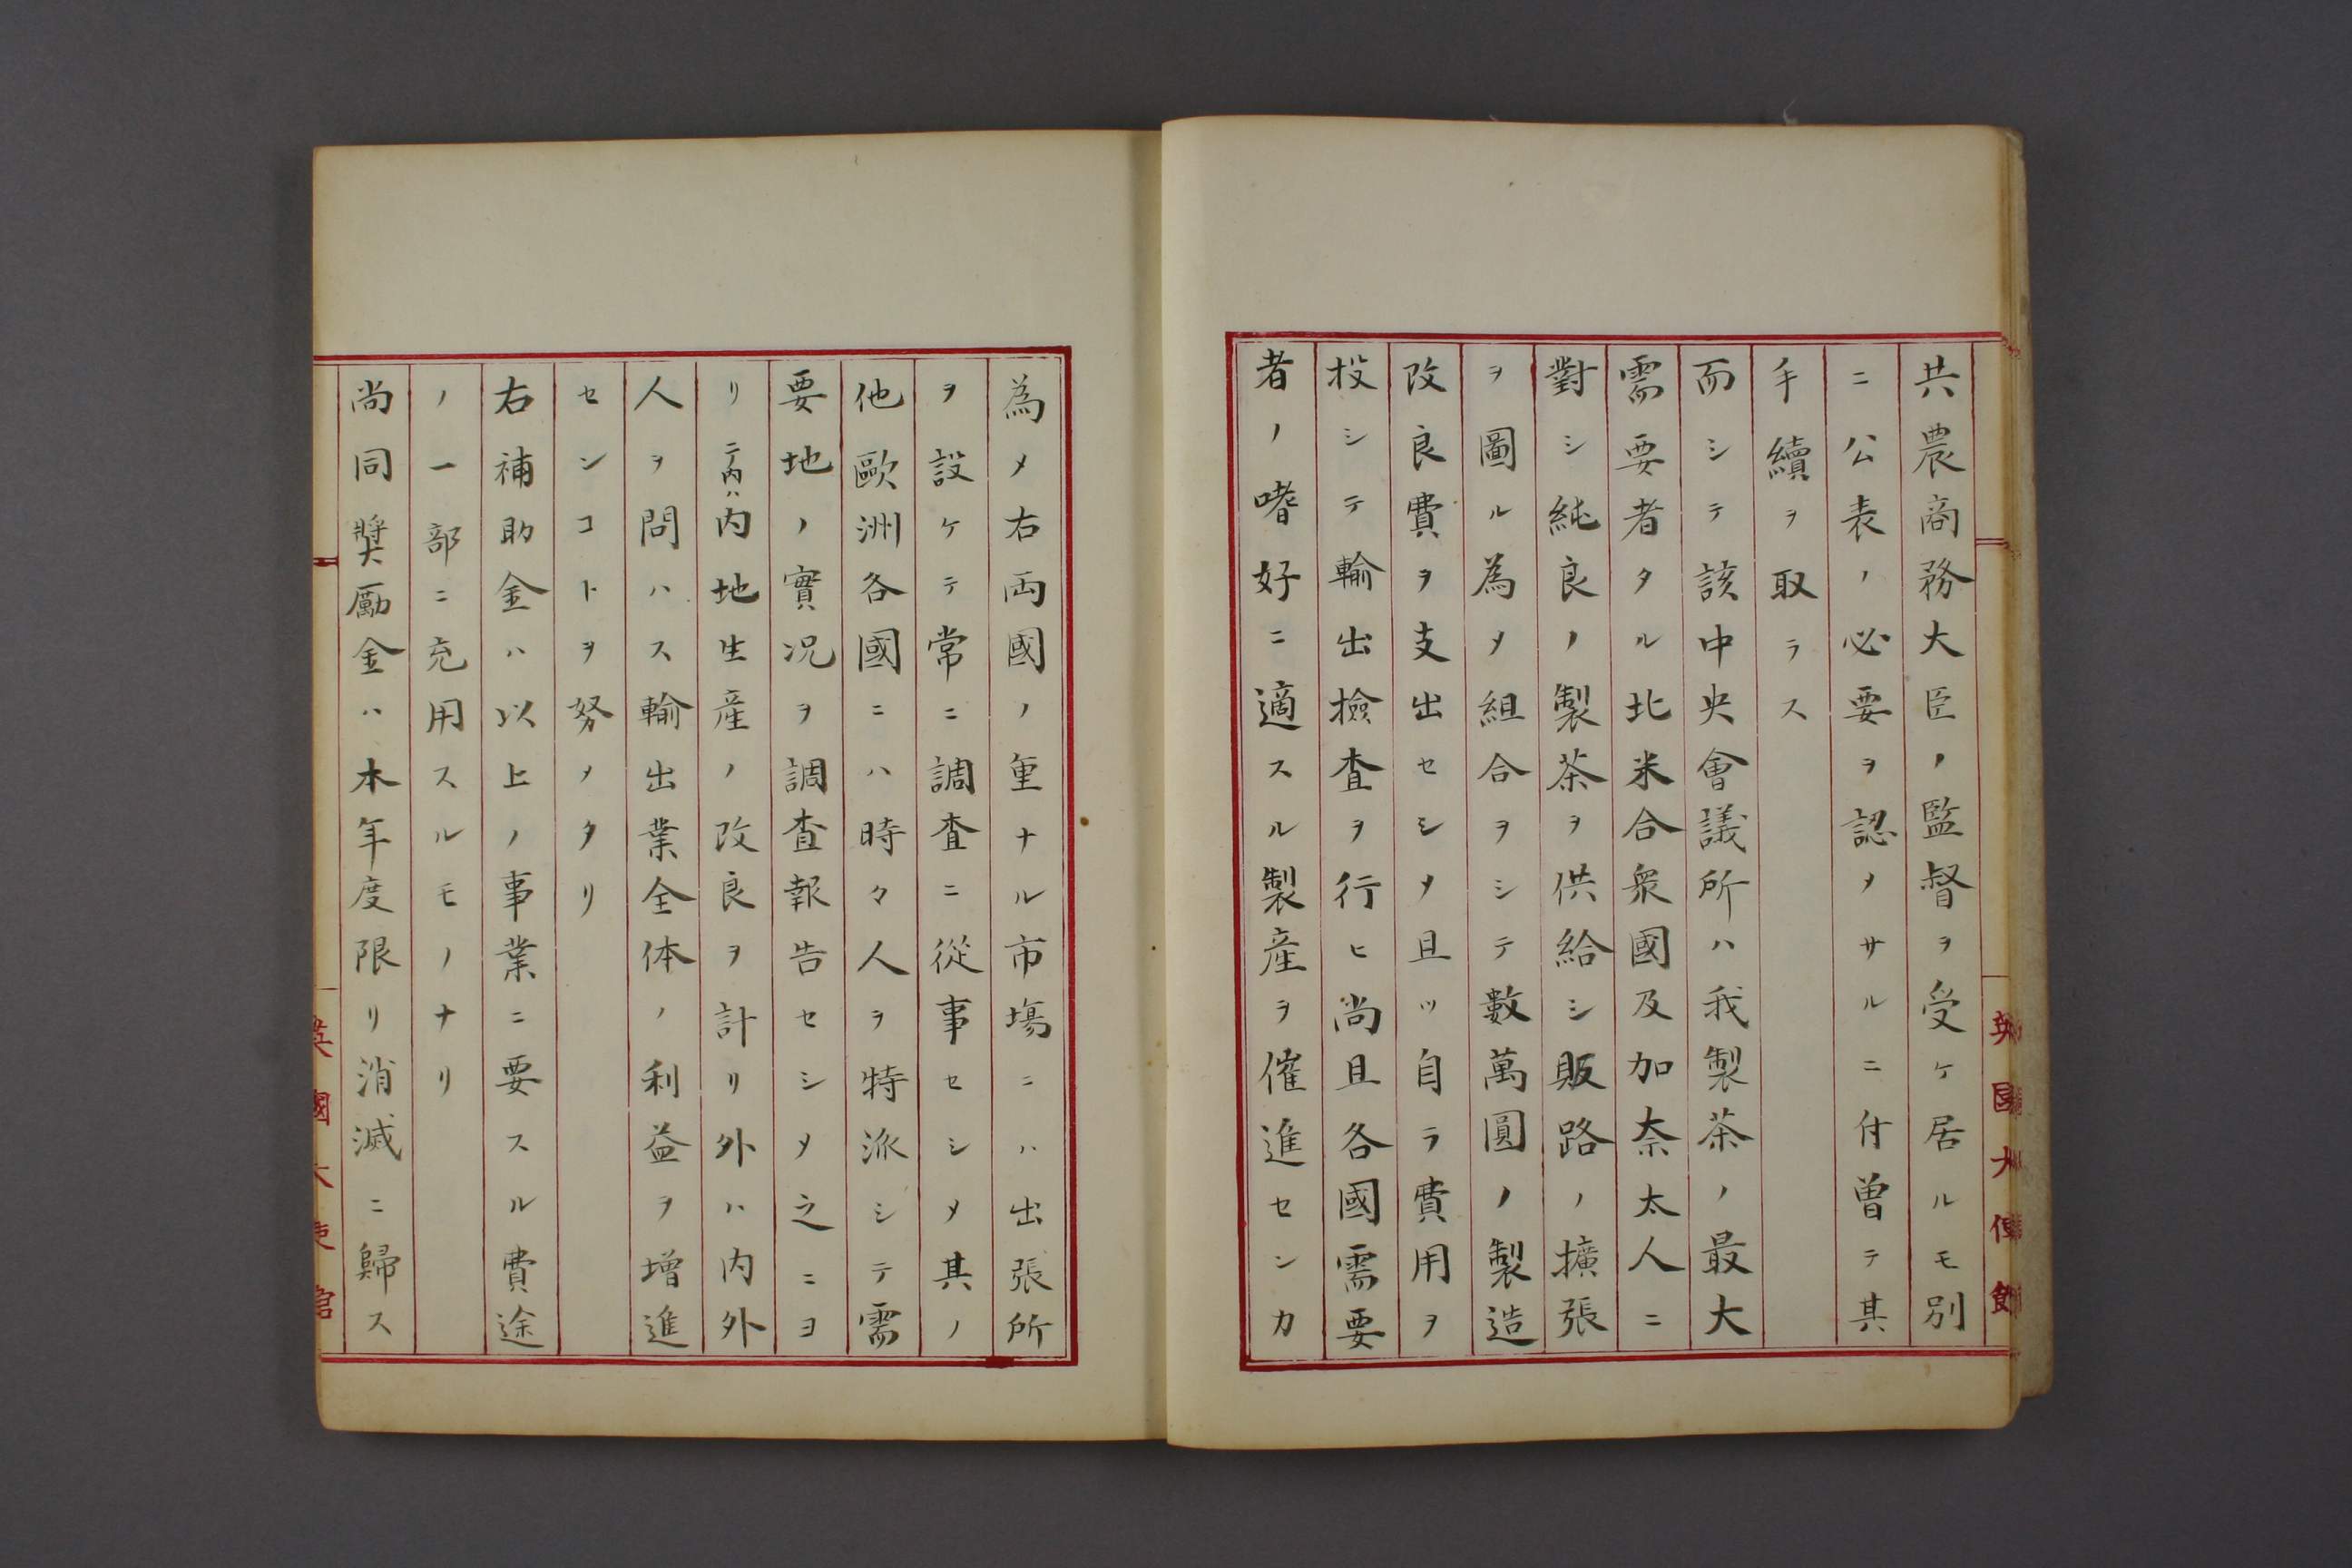 共農商務大臣ノ監督ヲ受ケ居ルモ別
ニ公表ノ必要ヲ認メサルニ付曽テ其
手續ヲ取ラス
而シテ該中央會議所ハ我製茶ノ最大
需要者タル北米合衆國及加奈太人ニ
對シ純良ノ製茶ヲ供給シ販路ノ擴張
ヲ圖ル為メ組合ヲシテ數萬圓ノ製造
改良費ヲ支出セシメ且ッ自ラ費用ヲ
投シテ輸出撿査ヲ行ヒ尚且各國需要
者ノ嗜好ニ適スル製産ヲ催進センカ
為メ右両國ノ重ナル市場ニハ出張所
ヲ設ケテ常ニ調査ニ從事セシメ其ノ
他歐洲各國ニハ時々人ヲ特派シテ需
要地ノ實况ヲ調査報告セシメ之ニヨ
リ内ニハ内地生産ノ改良ヲ計リ外ハ内外
人ヲ問ハス輸出業全体ノ利益ヲ增進
センコトヲ努メタリ
右補助金ハ以上ノ事業ニ要スル費途
ノ一部ニ充用スルモノナリ
尚同奬勵金ハ木年度限リ消滅ニ歸ス
英國大使館
英國大使館